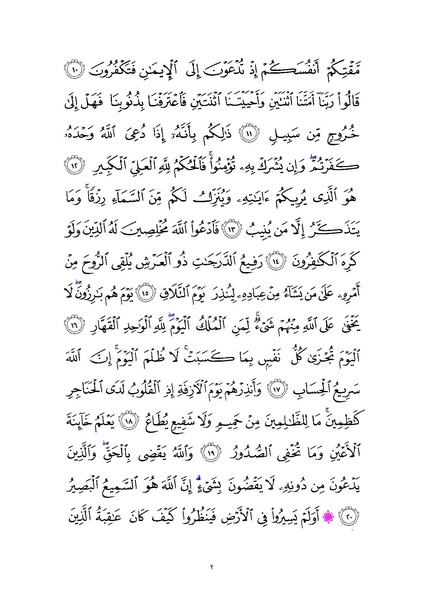 مَّقْتِكُمْ أَنفُسَكُمْ إِذْ تُدْعَوْنَ إِلَى ٱلْإِيمَٰنِ فَتَكْفُرُونَ ١٠
قَالُوا۟ رَبَّنَآ أَمَتَّنَا ٱثْنَتَيْنِ وَأَحْيَيْتَنَا ٱثْنَتَيْنِ فَٱعْتَرَفْنَا بِذُنُوبِنَا فَهَلْ إِلَىٰ
خُرُوجٍ مِّن سَبِيلٍ ١١ ذَٰلِكُم بِأَنَّهُۥٓ إِذَا دُعِىَ ٱللَّهُ وَحْدَهُۥ
كَفَرْتُمْ ۖ وَإِن يُشْرَكْ بِهِۦ تُؤْمِنُوا۟ ۚ فَٱلْحُكْمُ لِلَّهِ ٱلْعَلِىِّ ٱلْكَبِيرِ ١٢
هُوَ ٱلَّذِى يُرِيكُمْ ءَايَٰتِهِۦ وَيُنَزِّلُ لَكُم مِّنَ ٱلسَّمَآءِ رِزْقًا ۚ وَمَا
يَتَذَكَّرُ إِلَّا مَن يُنِيبُ ١٣ فَٱدْعُوا۟ ٱللَّهَ مُخْلِصِينَ لَهُ ٱلدِّينَ وَلَوْ
كَرِهَ ٱلْكَٰفِرُونَ ١٤ رَفِيعُ ٱلدَّرَجَٰتِ ذُو ٱلْعَرْشِ يُلْقِى ٱلرُّوحَ مِنْ
أَمْرِهِۦ عَلَىٰ مَن يَشَآءُ مِنْ عِبَادِهِۦ لِيُنذِرَ يَوْمَ ٱلتَّلَاقِ ١٥ يَوْمَ هُم بَٰرِزُونَ ۖ لَا
يَخْفَىٰ عَلَى ٱللَّهِ مِنْهُمْ شَىْءٌ ۚ لِّمَنِ ٱلْمُلْكُ ٱلْيَوْمَ ۖ لِلَّهِ ٱلْوَٰحِدِ ٱلْقَهَّارِ ١٦
ٱلْيَوْمَ تُجْزَىٰ كُلُّ نَفْسٍۭ بِمَا كَسَبَتْ ۚ لَا ظُلْمَ ٱلْيَوْمَ ۚ إِنَّ ٱللَّهَ
سَرِيعُ ٱلْحِسَابِ ١٧ وَأَنذِرْهُمْ يَوْمَ ٱلْءَازِفَةِ إِذِ ٱلْقُلُوبُ لَدَى ٱلْحَنَاجِرِ
كَٰظِمِينَ ۚ مَا لِلظَّٰلِمِينَ مِنْ حَمِيمٍ وَلَا شَفِيعٍ يُطَاعُ ١٨ يَعْلَمُ خَآئِنَةَ
ٱلْأَعْيُنِ وَمَا تُخْفِى ٱلصُّدُورُ ١٩ وَٱللَّهُ يَقْضِى بِٱلْحَقِّ ۖ وَٱلَّذِينَ
يَدْعُونَ مِن دُونِهِۦ لَا يَقْضُونَ بِشَىْءٍ ۗ إِنَّ ٱللَّهَ هُوَ ٱلسَّمِيعُ ٱلْبَصِيرُ
٢٠ ۞ أَوَلَمْ يَسِيرُوا۟ فِى ٱلْأَرْضِ فَيَنظُرُوا۟ كَيْفَ كَانَ عَٰقِبَةُ ٱلَّذِينَ
٢